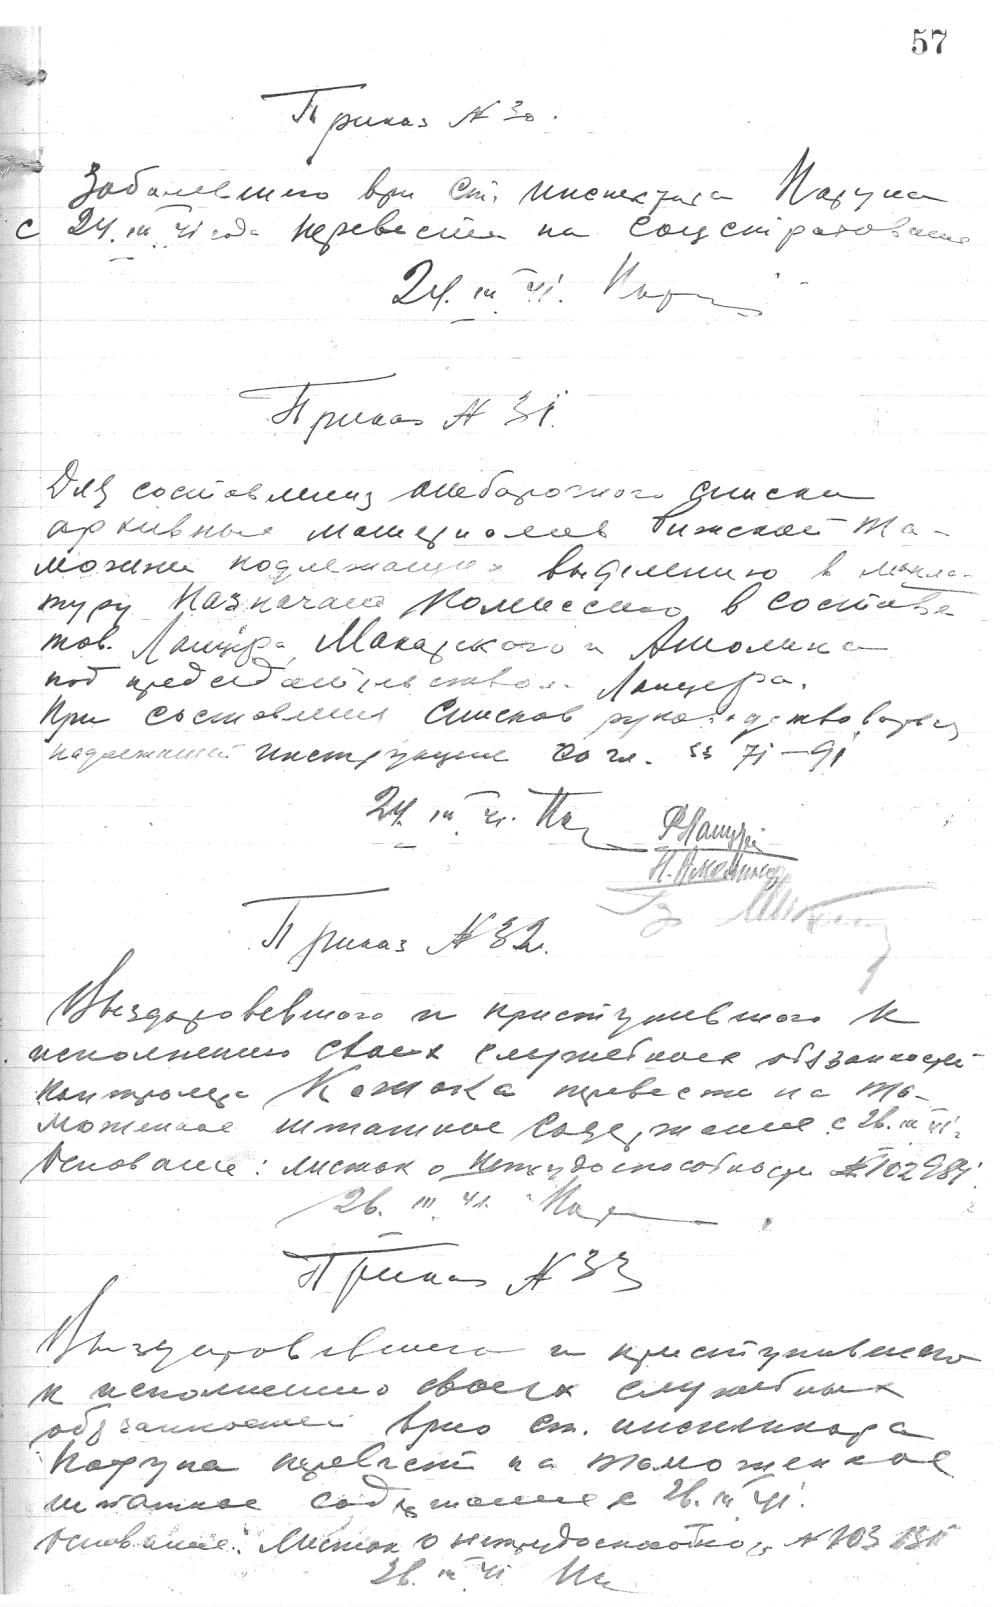 57
Приказ № 30.
Заболевшего врио ст. инспектора
с 24.III 41 года перевести на соцстрахование
24.III 41.
Приказ № 31.
Для составления отборочного списка
архивных материалов Рижской та-
можни подлежащих выделению в макла-
туру назначаю комиссию в составе
тов. Ланцера, Макарского и Амолина
под председательством Ланцера.
При составлении списков руководствоваться
надлежащей инструкцией согл. §§ 71–91
24.III 41.
Приказ № 32.
Выздоровевшего и приступившего к
исполнению своих служебных обязанностей
контролера перевести на та-
моженное штатное содержание с 26.III 41 г.
Основание: листок о нетрудоспособности № 102981.
26.III 41.
Приказ № 33
Выздоровевшего и приступившего
к исполнению своих служебных
обязанностей врио ст. инспектора
перевести на таможенное
штатное содержание с 26.III 41.
Основание: Листок о нетрудоспособности № 103
26.III 41